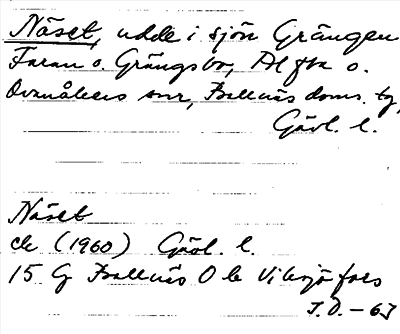 Näset, udde i sjön Grängen
Faran o. Grängsbo, Alfta o.
Ovanåkers snr, Bollnäs doms. tg,
Gävl. l.
Näset
ek (1960) Gävl. l.
15 G Bollnäs O b Viksjöfors
J.Ö. -63